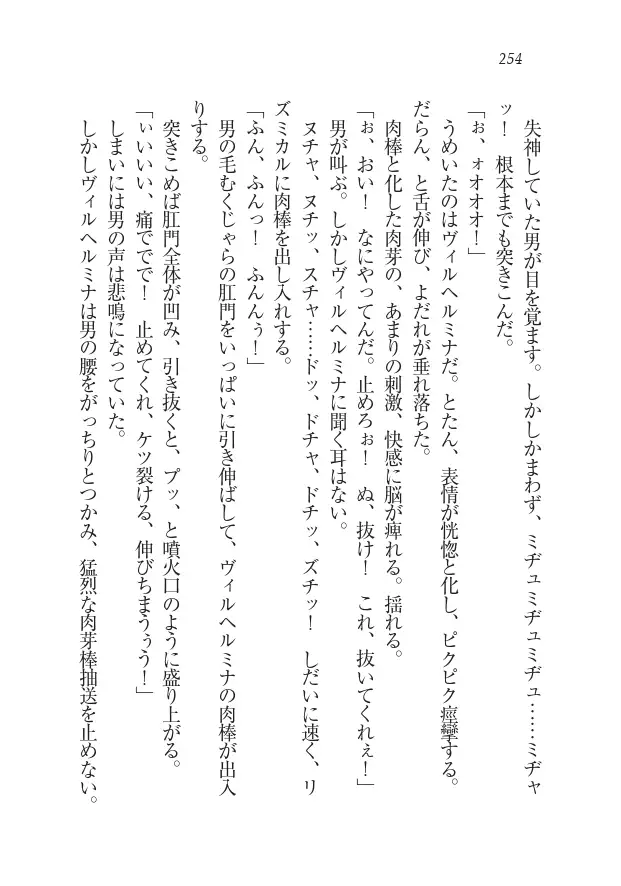 254
失神していた男が目を覚ます。しかしかまわず、ミヂュミヂュミヂュ……ミヂャ
ッ！　根本までも突きこんだ。
「ぉ、ォオオオ！」
うめいたのはヴィルヘルミナだ。とたん、表情が恍惚と化し、ピクピク痙攣する。
だらん、と舌が伸び、よだれが垂れ落ちた。
肉棒と化した肉芽の、あまりの刺激、快感に脳が痺れる。揺れる。
「ぉ、おい！　なにやってんだ。止めろぉ！　ぬ、抜け！　これ、抜いてくれぇ！」
男が叫ぶ。しかしヴィルヘルミナに聞く耳はない。
ヌチャ、ヌチッ、スチャ……ドッ、ドチャ、ドチッ、ズチッ！　しだいに速く、リ
ズミカルに肉棒を出し入れする。
「ふん、ふんっ！　ふんんぅ！」
男の毛むくじゃらの肛門をいっぱいに引き伸ばして、ヴィルヘルミナの肉棒が出入
りする。
突きこめば肛門全体が凹み、引き抜くと、プッ、と噴火口のように盛り上がる。
「ぃいいい、痛ででで！　止めてくれ、ケツ裂ける、伸びちまうぅう！」
しまいには男の声は悲鳴になっていた。
しかしヴィルヘルミナは男の腰をがっちりとつかみ、猛烈な肉芽棒抽送を止めない。